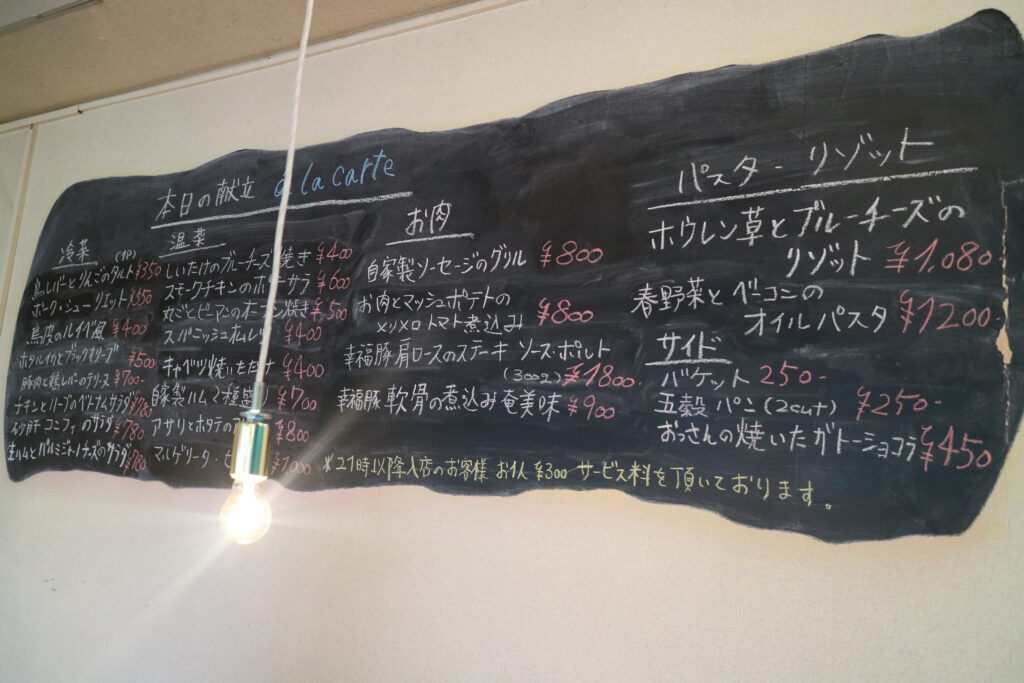 本日の献立 à la carte
冷菜 (1P)
鳥レバーとりんごのタルト ¥350
ポーク・シューリエット ¥350
鳥皮のルイベ風 ¥400
ホタルイカとブラックオリーブ ¥500
豚肉と鶏レバーのテリーヌ ¥700-
チキンとハーブのベトナムサラダ ¥780
砂肝コンフィのサラダ ¥780
生ハムとパルミジャーノチーズのサラダ ¥780
温菜
しいたけのブルーチーズ焼き ¥400
スモークチキンのポテーサラ ¥600
丸ごとピーマンのオーブン焼き ¥500
スパニッシュオムレツ ¥400
キャベツ焼いただけ ¥400
自家製ハム2種盛り ¥700
アサリとホタテの ¥800
マルゲリータ・ ¥1,000
お肉
自家製ソーセージのグリル ¥800
お肉とマッシュポテトの
メリメロトマト煮込み ¥800
幸福豚肩ロースのステーキ ソース・ポルト
(300g) ¥1800
幸福豚軟骨の煮込み奄美味 ¥900
パスタ - リゾット
ホウレン草とブルーチーズの
リゾット ¥1,080-
春野菜とベーコンの
オイルパスタ ¥1200-
サイド
バケット 250-
五穀パン(2cut) ¥250-
おっさんの焼いたガトーショコラ ¥450
※21時以降入店のお客様 お1人 ¥300 サービス料を頂いております。